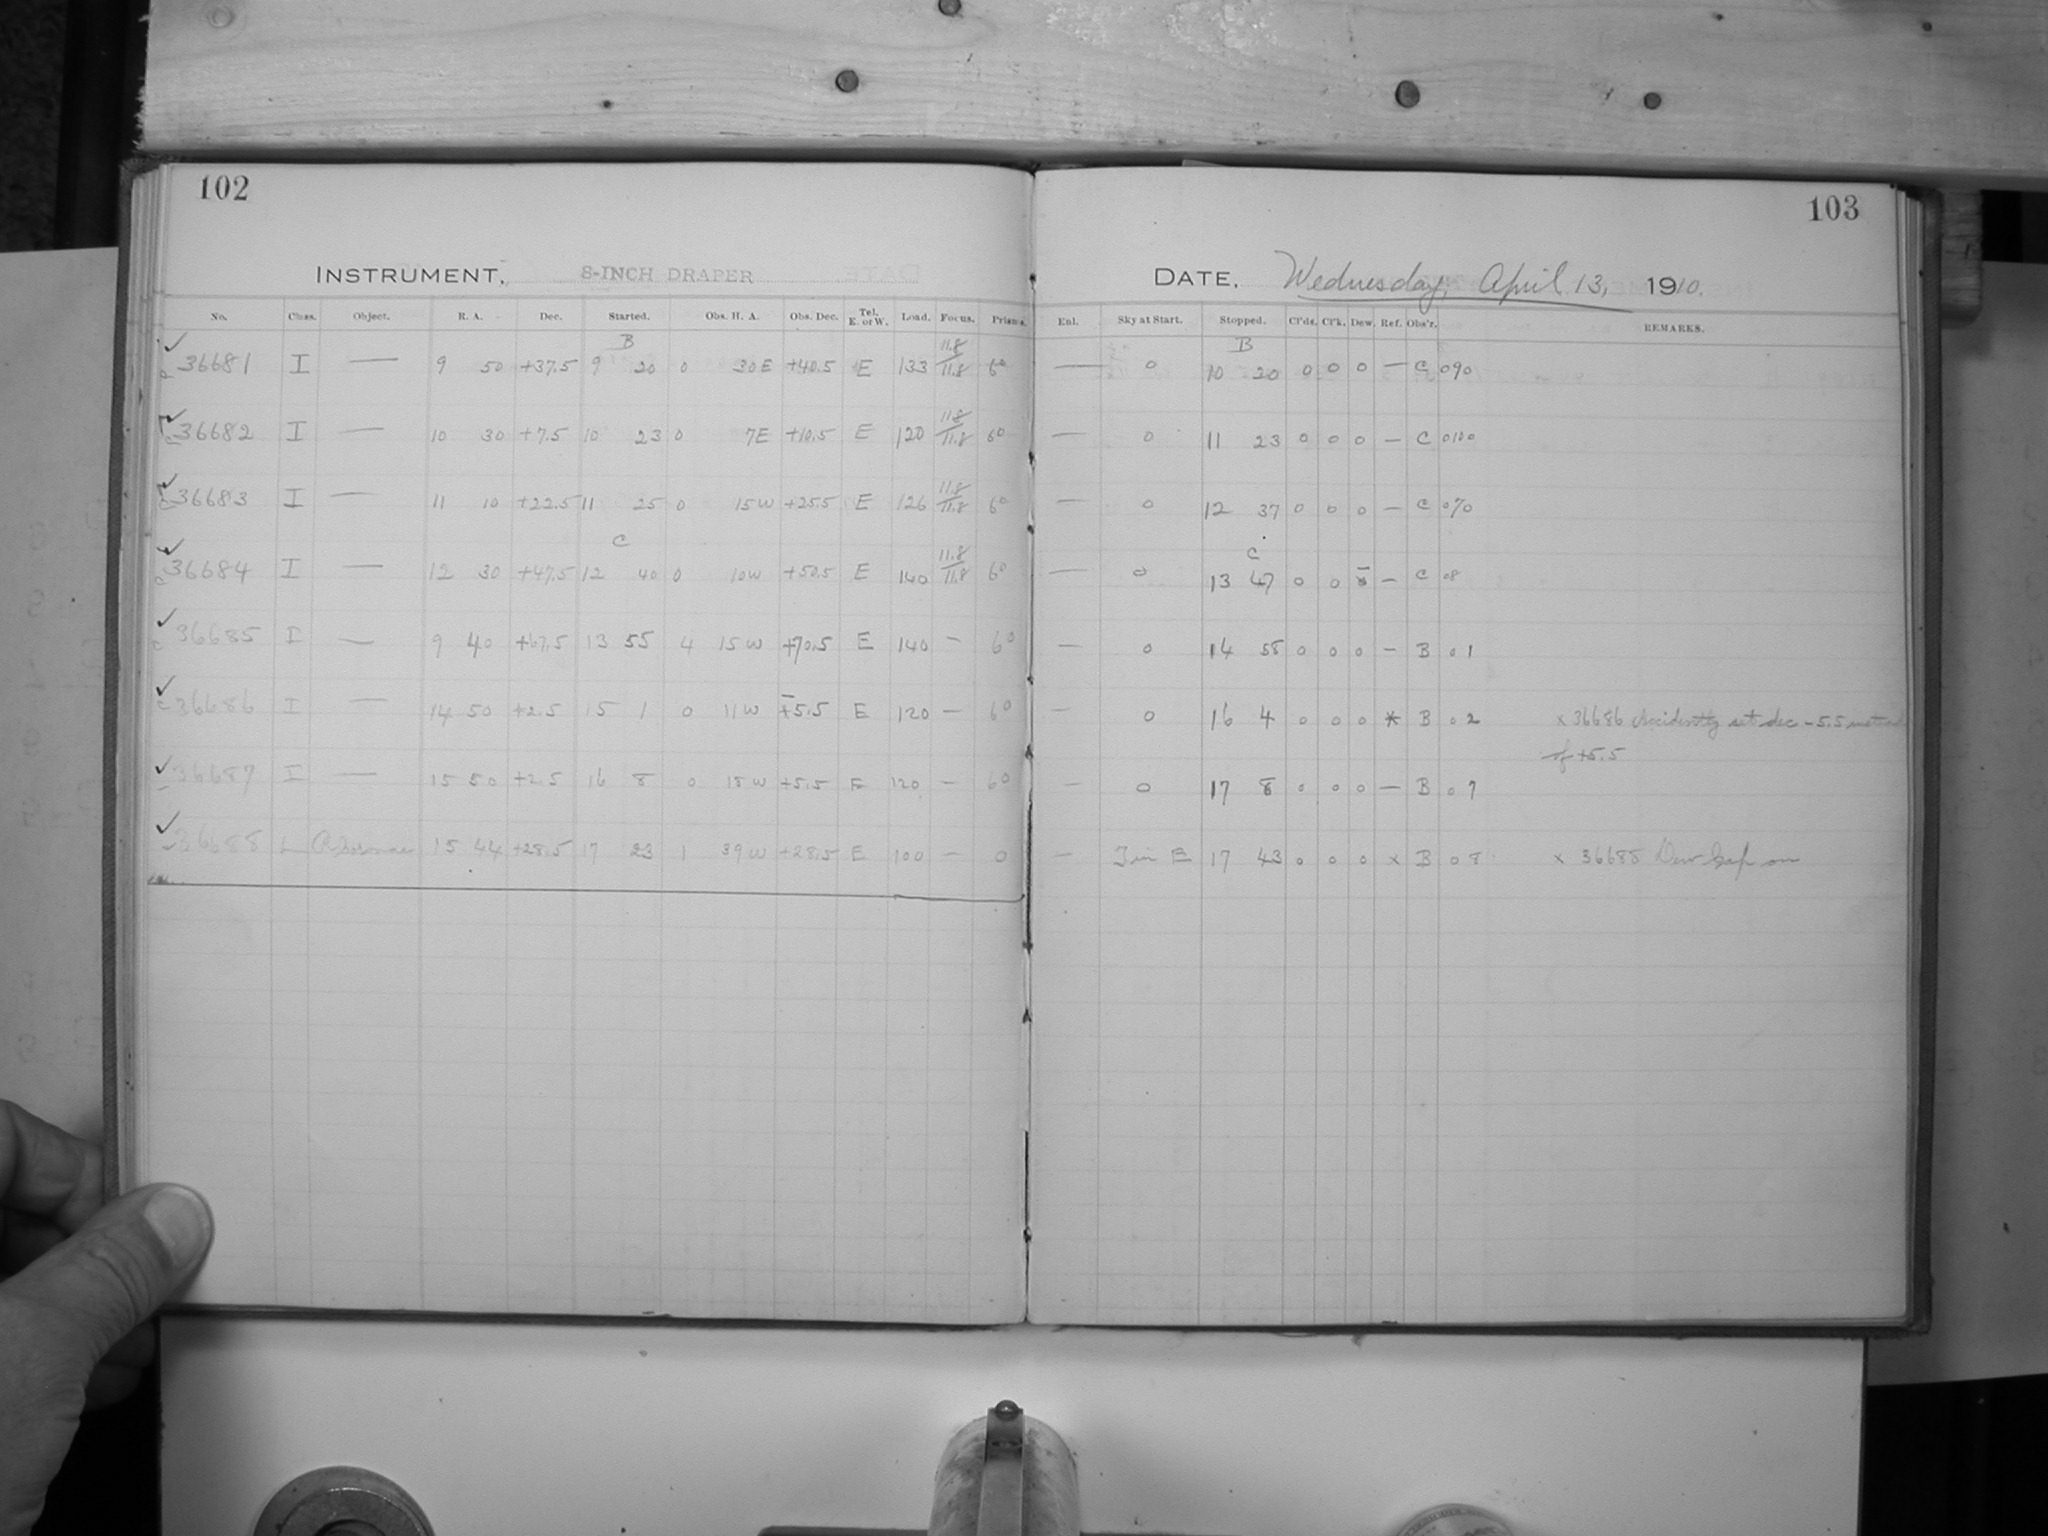 102
INSTRUMENT, 8-INCH DRAPER
No. Class. Object. R. A. Dec. Started. Obs. H. A. Obs. Dec. Tel. E. or W. Load. Focus. Prisms.
B
36681 I — 9 50 +37.5 9 20 0 30 E +40.5 E 133 11.8/11.8 6°
36682 I — 10 30 +7.5 10 23 0 7E +10.5 E 120 11.8/11.8 6°
36683 I — 11 10 +22.5 11 25 0 15 W +25.5 E 126 11.8/11.8 6°
C
36684 I — 12 30 +47.5 12 40 0 10 W +50.5 E 140 11.8/11.8 6°
36685 I — 9 40 +67.5 13 55 4 15 W +70.5 E 140 — 6°
36686 I — 14 50 +2.5 15 1 0 11 W 5.5 E 120 — 6°
36687 I — 15 50 +2.5 16 8 0 18 W +5.5 E 120 — 6°
36688 L 15 44 +28.5 17 23 1 39 W +28.5 E 100 — 0
103
DATE, Wednesday, April 13, 1910.
Enl. Sky at Start. Stopped. Cl'ds. Cl'k. Dew. Ref. Obs'r. REMARKS.
B
— 0 10 20 0 0 0 — C 090
— 0 11 23 0 0 0 — C 0100
— 0 12 37 0 0 0 — C
C
— 0 13 47 0 0 — C 08
— 0 14 58 0 0 0 — B 01
— 0 16 4 0 0 0 * B 02 x 36686 Accidently set dec -5.5 instead
of +5.5
— 0 17 8 0 0 0 — B 07
— E 17 43 0 0 0 x B 08 x 36688 Dew Cap on